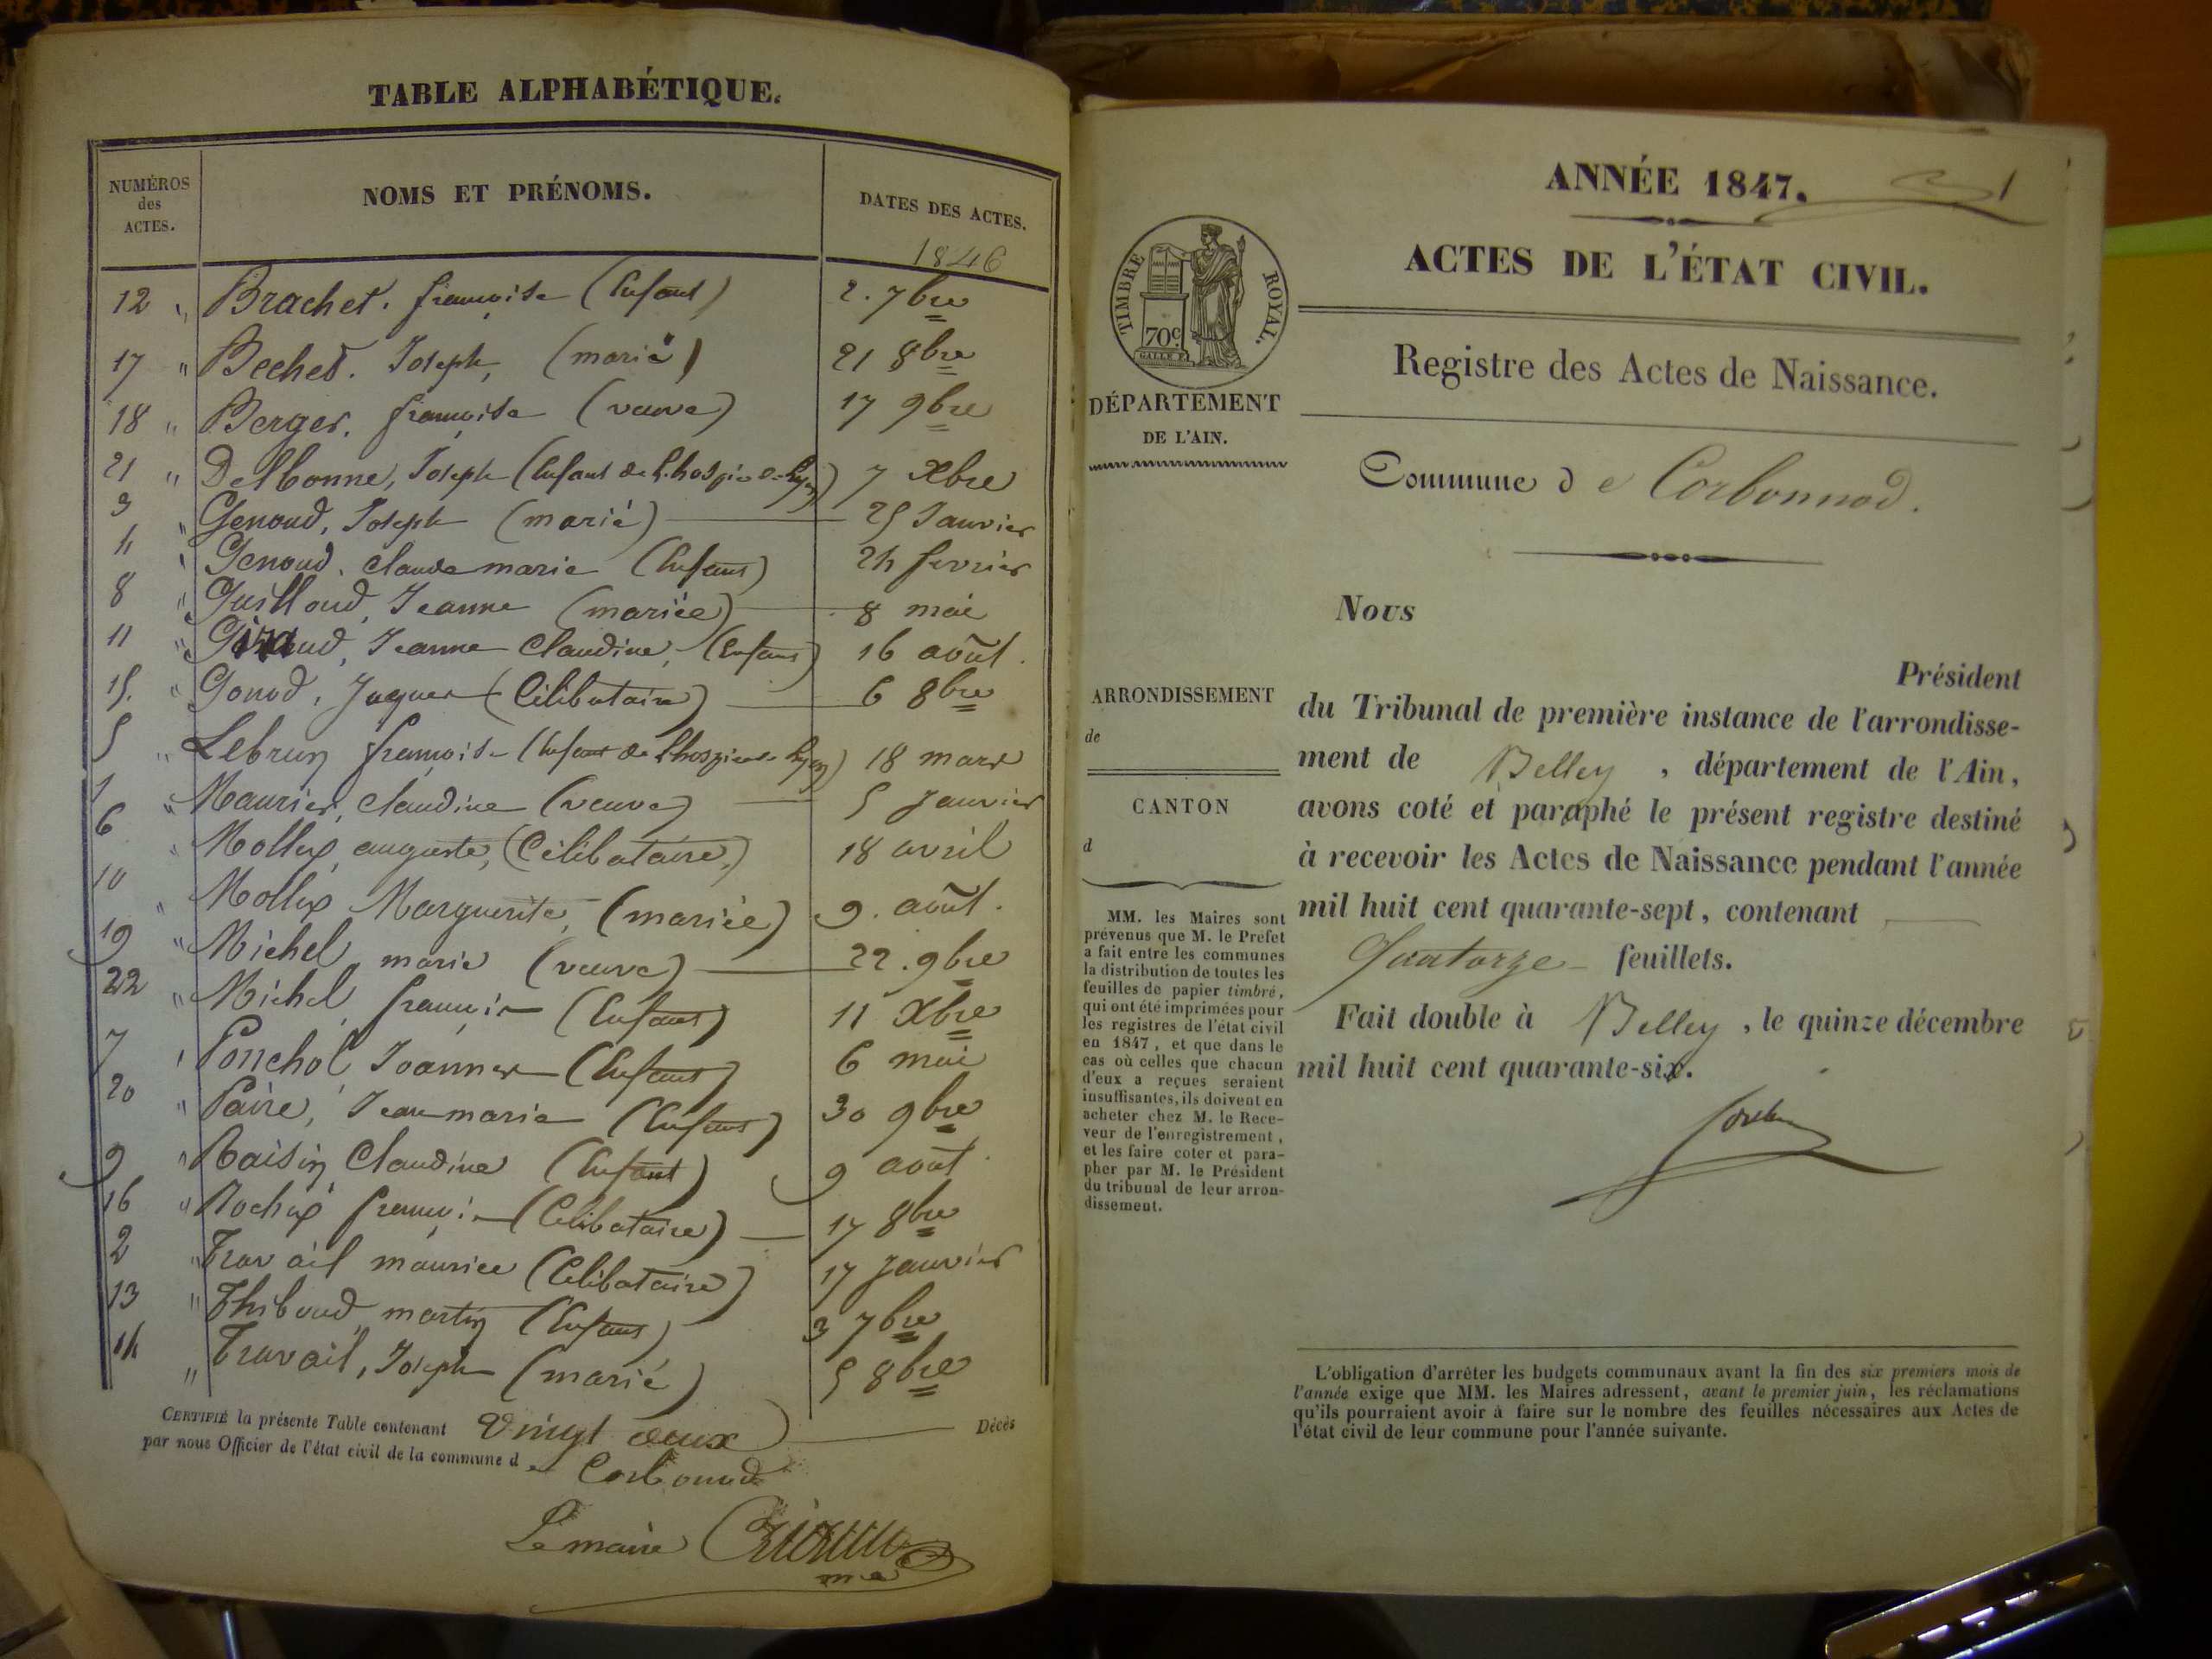 TABLE ALPHABÉTIQUE.
NUMÉROS des ACTES.
NOMS ET PRÉNOMS.
DATES DES ACTES.
1846
12 " Brachet. françoise (Enfant) 2. 7bre
17 " Bechet. Joseph, (marié) 21 8bre
18 " Berger. françoise (veuve) 17 9bre
21 " Delbonne, Joseph (Enfant de l'hospice de Lyon) 7 Xbre
3 " Genoud, Joseph (marié) 25 Janvier
4 " Genoud, claude marie (Enfant) 24 fevrier
8 " Guilloud, Jeanne (mariée) 8 mai
11 " Giraud, Jeanne Claudine, (Enfant) 16 août.
15. " Gonod, Jaques (Célibataire) 6 8bre
5 " Lebrun françoise (Enfant de l'hospice de Lyon) 18 mars
1 " Maurier, claudine (veuve) 5 Janvier
6 " Mollex auguste, (Célibataire,) 18 avril
10 " Mollex Marguerite, (mariée) 9. août.
19 " Michel marie (veuve) 22. 9bre
22 " Michel françois (Enfant) 11 Xbre
7 " Ponchol, Joannes (Enfant) 6 mai
20 " Paire, Jean marie (Enfant) 30 9bre
9 " Raisin Claudine (Enfant) 9 août.
16 " Rochex françois (Célibataire) 17 8bre
2 " Travail maurice (Célibataire) 17 Janvier
13 " Thiboud martin (Enfant) 3 7bre
14 " Travail, Joseph (marié) 5 8bre
CERTIFIÉ la présente Table contenant Vingt deux Décès
par nous Officier de l'état civil de la commune de Corbonod
Le maire
ANNÉE 1847. 1
ACTES DE L'ÉTAT CIVIL.
TIMBRE ROYAL.
70c
Registre des Actes de Naissance.
DÉPARTEMENT
DE L'AIN.
Commune de Corbonnod.
Nous
Président
du Tribunal de première instance de l'arrondisse-
ment de Belley, département de l'Ain,
avons coté et paraphé le présent registre destiné
à recevoir les Actes de Naissance pendant l'année
mil huit cent quarante-sept, contenant
Quatorze feuillets.
Fait double à Belley, le quinze décembre
mil huit cent quarante-six.
ARRONDISSEMENT
de
CANTON
d
MM. les Maires sont
prévenus que M. le Préfet
a fait entre les communes
la distribution de toutes les
feuilles de papier timbré,
qui ont été imprimées pour
les registres de l'état civil
en 1847, et que dans le
cas où celles que chacun
d'eux a reçues seraient
insuffisantes, ils doivent en
acheter chez M. le Rece-
veur de l'enregistrement,
et les faire coter et para-
pher par M. le Président
du tribunal de leur arron-
dissement.
L'obligation d'arrêter les budgets communaux avant la fin des six premiers mois de
l'année exige que MM. les Maires adressent, avant le premier juin, les réclamations
qu'ils pourraient avoir à faire sur le nombre des feuilles nécessaires aux Actes de
l'état civil de leur commune pour l'année suivante.